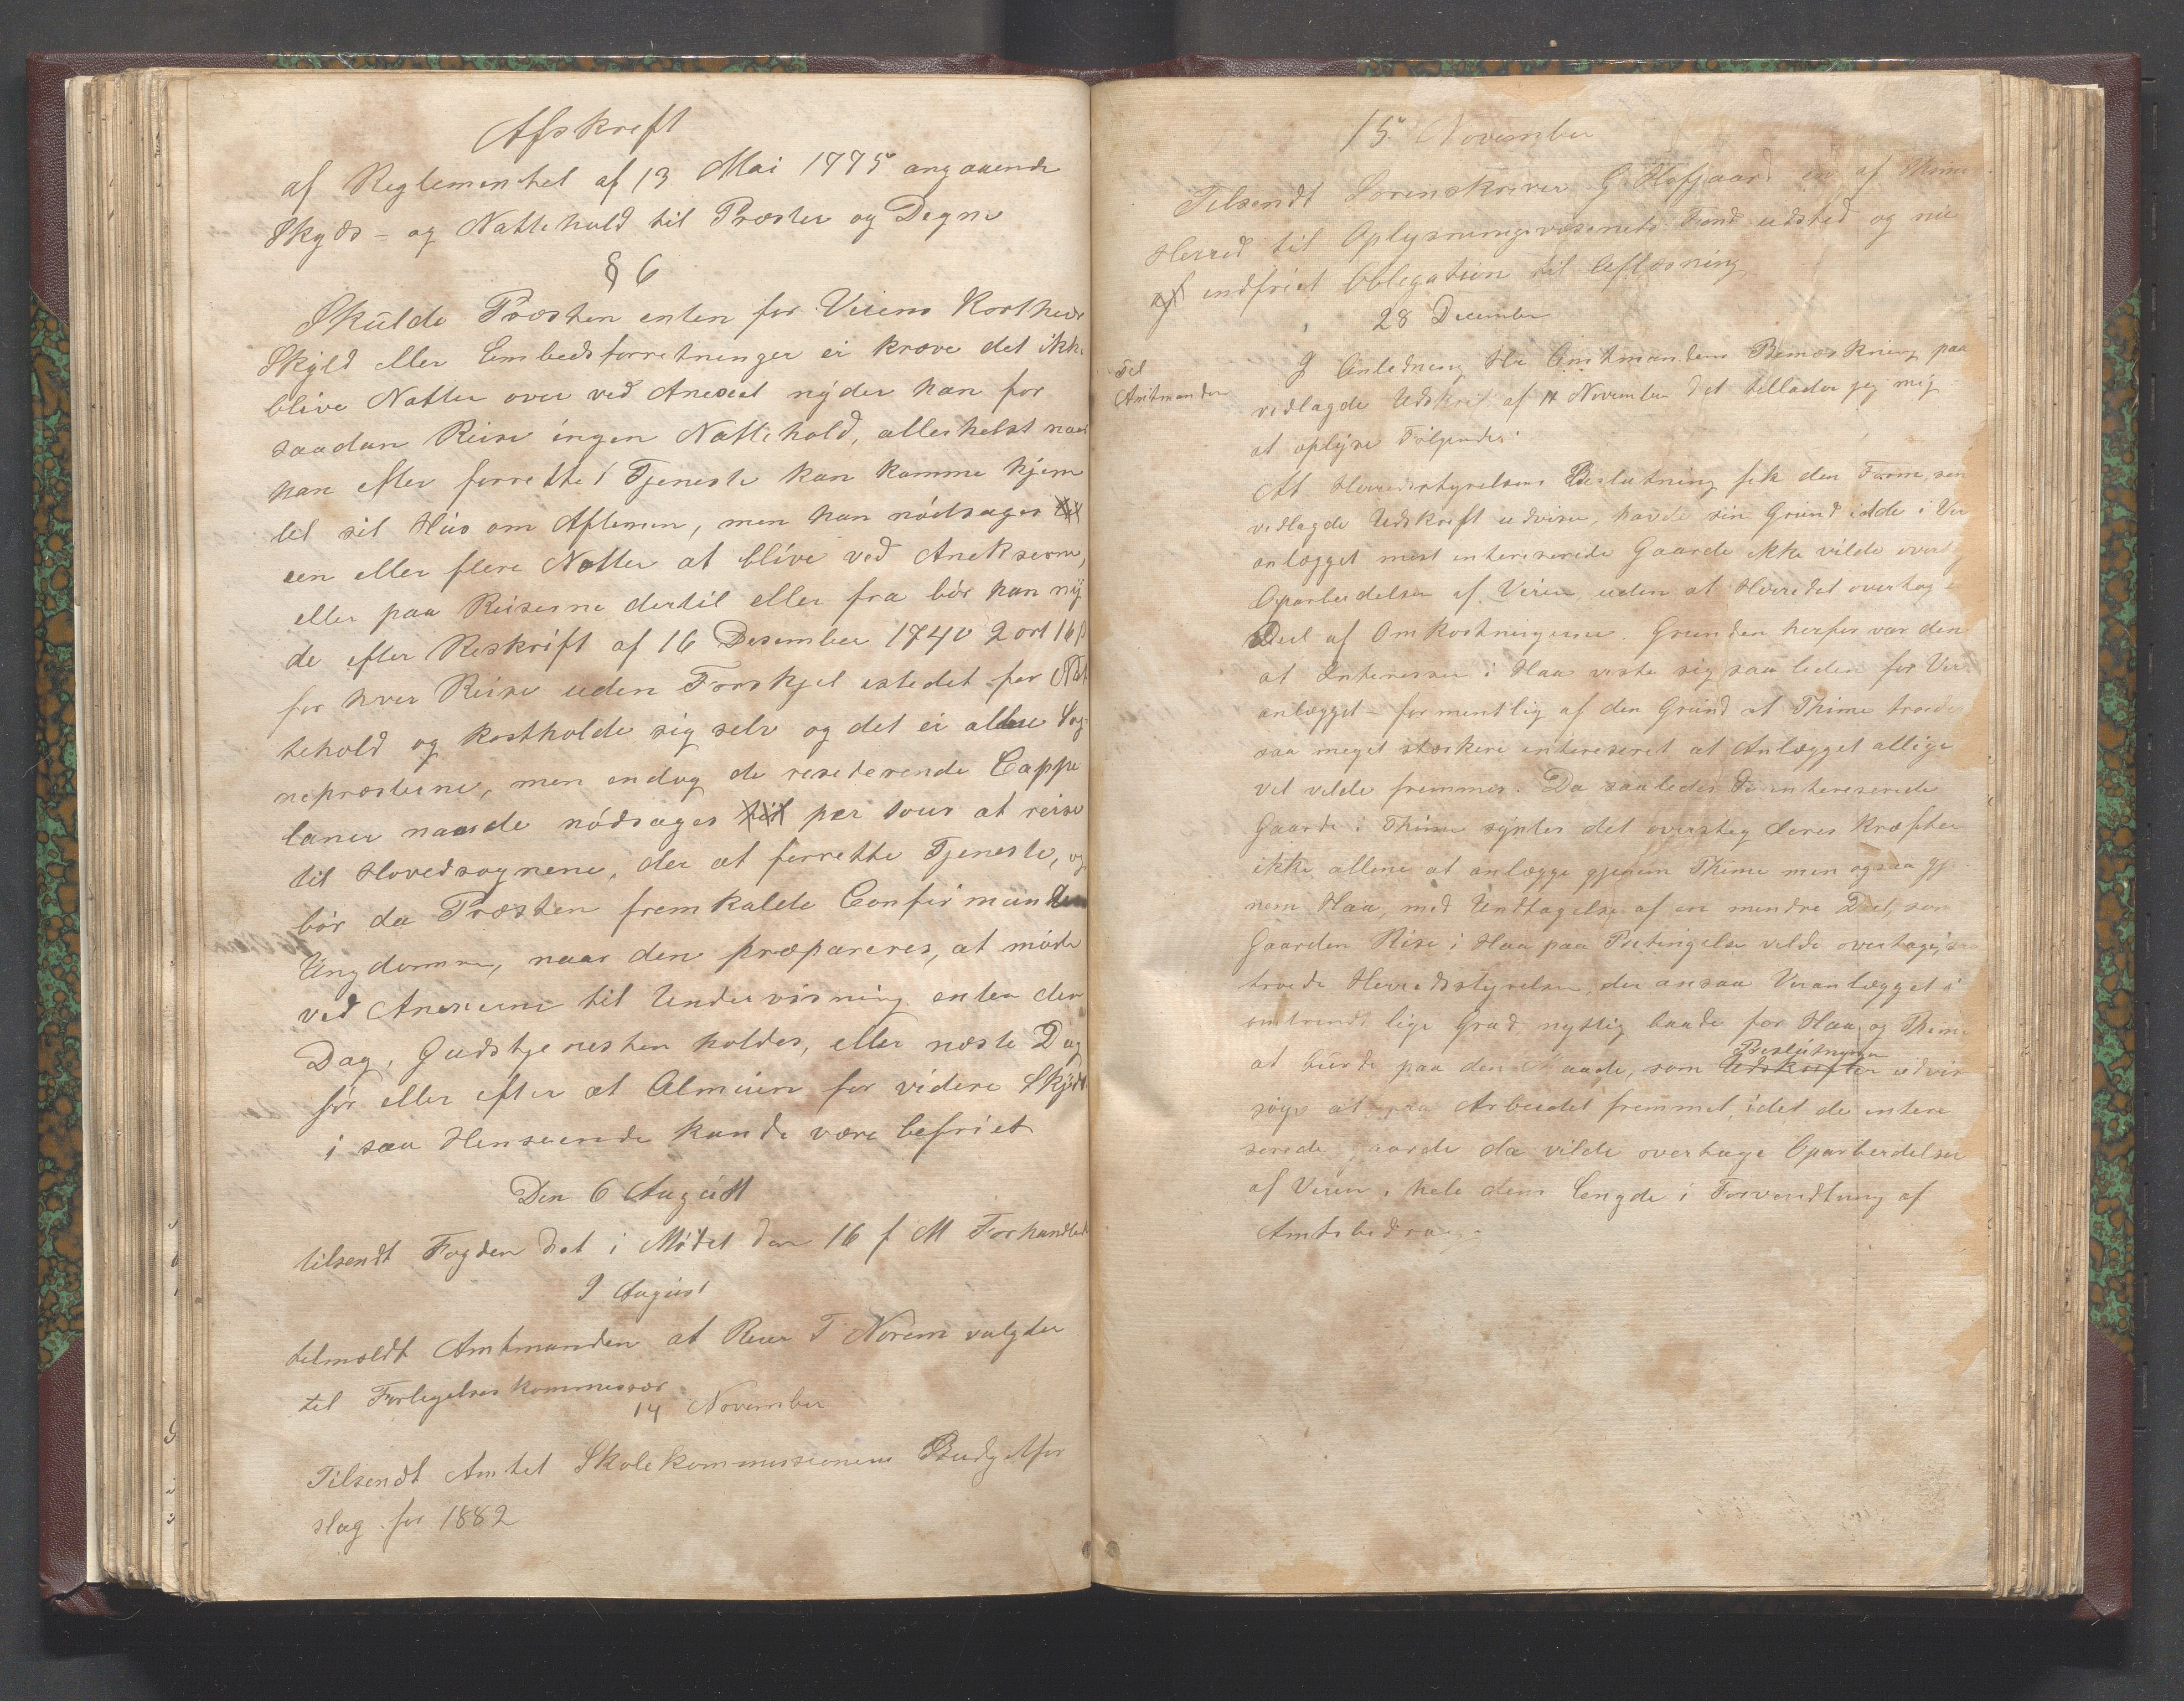 Afskreft
af Reglementet af 13 Mai 1775 angaaende
Skyds- og Nattehold til Præster og Degne
§ 6
Skulde Præsten enten for Veiens Kortheds
Skyld eller Embedsforretninger ei kræve det ikke
blive Natten over ved Anexet nyder han for
saadan Reise ingen Nattehold, allerhelst naar
han efter forrettet Tjeneste kan komme hjem
til sit Hus om Aftenen, men han nödsages til
een eller flere Nætter at blive ved Anekserne,
eller paa Reiserne dertil eller fra bör han ny
de efter Reskrift af 16 Desember 1740 2 ort 16 ß
for hver Reise uden Forskjel istedet for Nat
tehold og kostholde sig selv og det ei allene Sog
nepræsterne, men endog de reseterende Cappe
laner naar de nödsages til per vous at reise
til Hovedsognene, der at forrette Tjeneste, og
bör da Præsten fremkalde Confirmanden
Ungdommen, naar den præpareres, at möde
ved Anexerne til Undervisning enten den
Dag, Gudstjenesten holdes, eller næste Dag
för eller efter at Almuen for videre Skyds
i saa Henseende kunde være befriet
Den 6 August
tilsendt Fogden det i Mödet den 16 f M Forhandlede
9 August
tilmeldt Amtmanden at Reier T Norem valgtes
til Forligelseskommissær
14 November
Tilsendt Amtet Skolekommissionens Budgetfor
slag for 1882
15 November
Tilsendt Sorenskriver G Hofgaard en af Thime
Herred til Oplysningsvæsenets Fond udsted og nu
af indfriet Obligation til Aflæsning
28 December
Til
Amtmanden
I Anledning Hr Amtmandens Bemærkning paa
vedlagde Udskrift af 11 November d.A tillader jeg mig
at oplyse Fölgende:
At Herredsstyrelsens Beslutning fik den Form, som
vedlagde Udskrift udviser, havde sin Grund idet de i Vei
anlægget mest interesserede Gaarde ikke vilde overtage
Oparbeidelsen af Veien, uden at Herredet overtog en
Deel af Omkostningerne. Grunden herfor var den
at Interessen i Haa viste sig saa leden for Vei
anlægget - formentlig af den Grund at Thime troedes
saa meget stærkere interesseret at Anlægget allige
vel vilde fremmes. Da saaledes de interesserede
Gaarde i Thime syntes det oversteg deres Kræfter
ikke allene at anlægge gjenem Thime men ogsaa gj
nem Haa, med Undtagelse af en mindre Deel, som
Gaarden Rise i Haa paa Betingelse vilde overtage, saa
troede Herredsstyrelsen, der ansaa Veianlægget i
omtrendt lige Grad nyttig baade for Haa og Thime
at burde paa den Maade, som Udskrifter Beslutningen udvis
söge at faa Arbeidet fremmet, idet de intere
serede Gaarde da vilde overtage Oparbeidelsen
af Veien i hele dens Længde i Forvendtning af
Amtsbidrag.